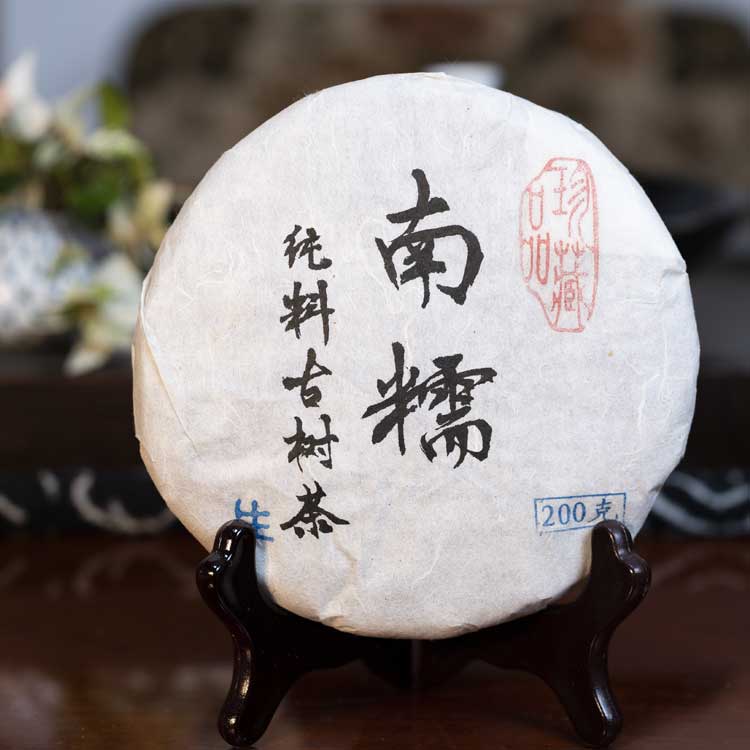 珍藏
品
南糯
纯料古树茶
生
200克